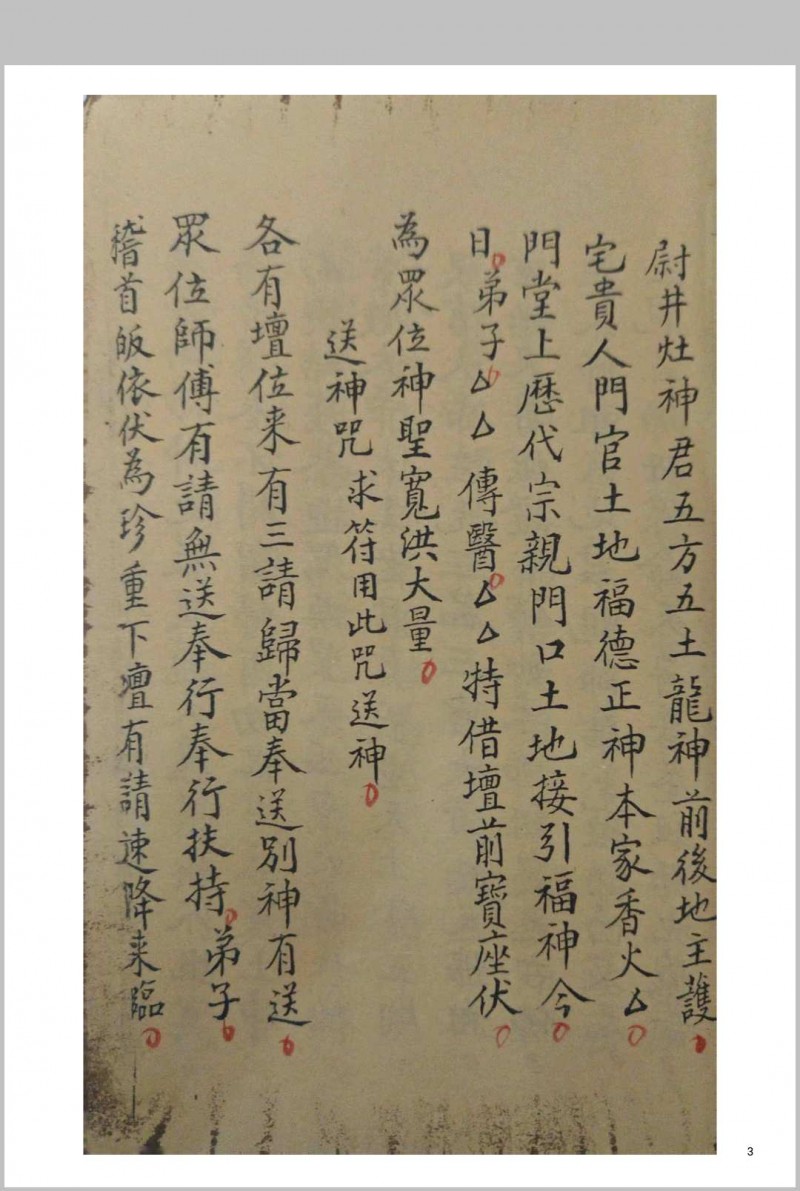 尉井灶神君五方五土龍神前後地主護
宅貴人門官土地福德正神本家香火厶
門堂上歷代宗親門口土地接引福神今
日弟子厶厶傳醫厶厶特借壇前寶座伏
為眾位神聖寬洪大量
送神咒求符用此咒送神
各有壇位来有三請歸當奉送別神有送
眾位師傅有請無送奉行奉行扶持弟子
稽首皈依伏為珍重下壇有請速降来臨
3